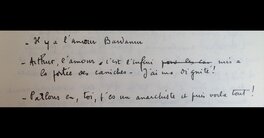 - Il y a l'amour Bardamu
- Arthur, l'amour, c'est l'infini pour les can mis à
la portée des caniches - J'ai ma dignité !
- Parlons en, toi, j'es un anarchiste et puis voila tout !